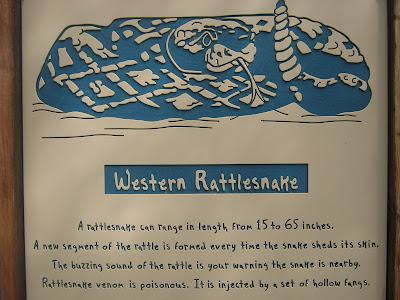 Western Rattlesnake
A rattlesnake can range in length from 15 to 65 inches.
A new segment of the rattle is formed every time the snake sheds its skin.
The buzzing sound of the rattle is your warning the snake is nearby.
Rattlesnake venom is poisonous. It is injected by a set of hollow fangs.